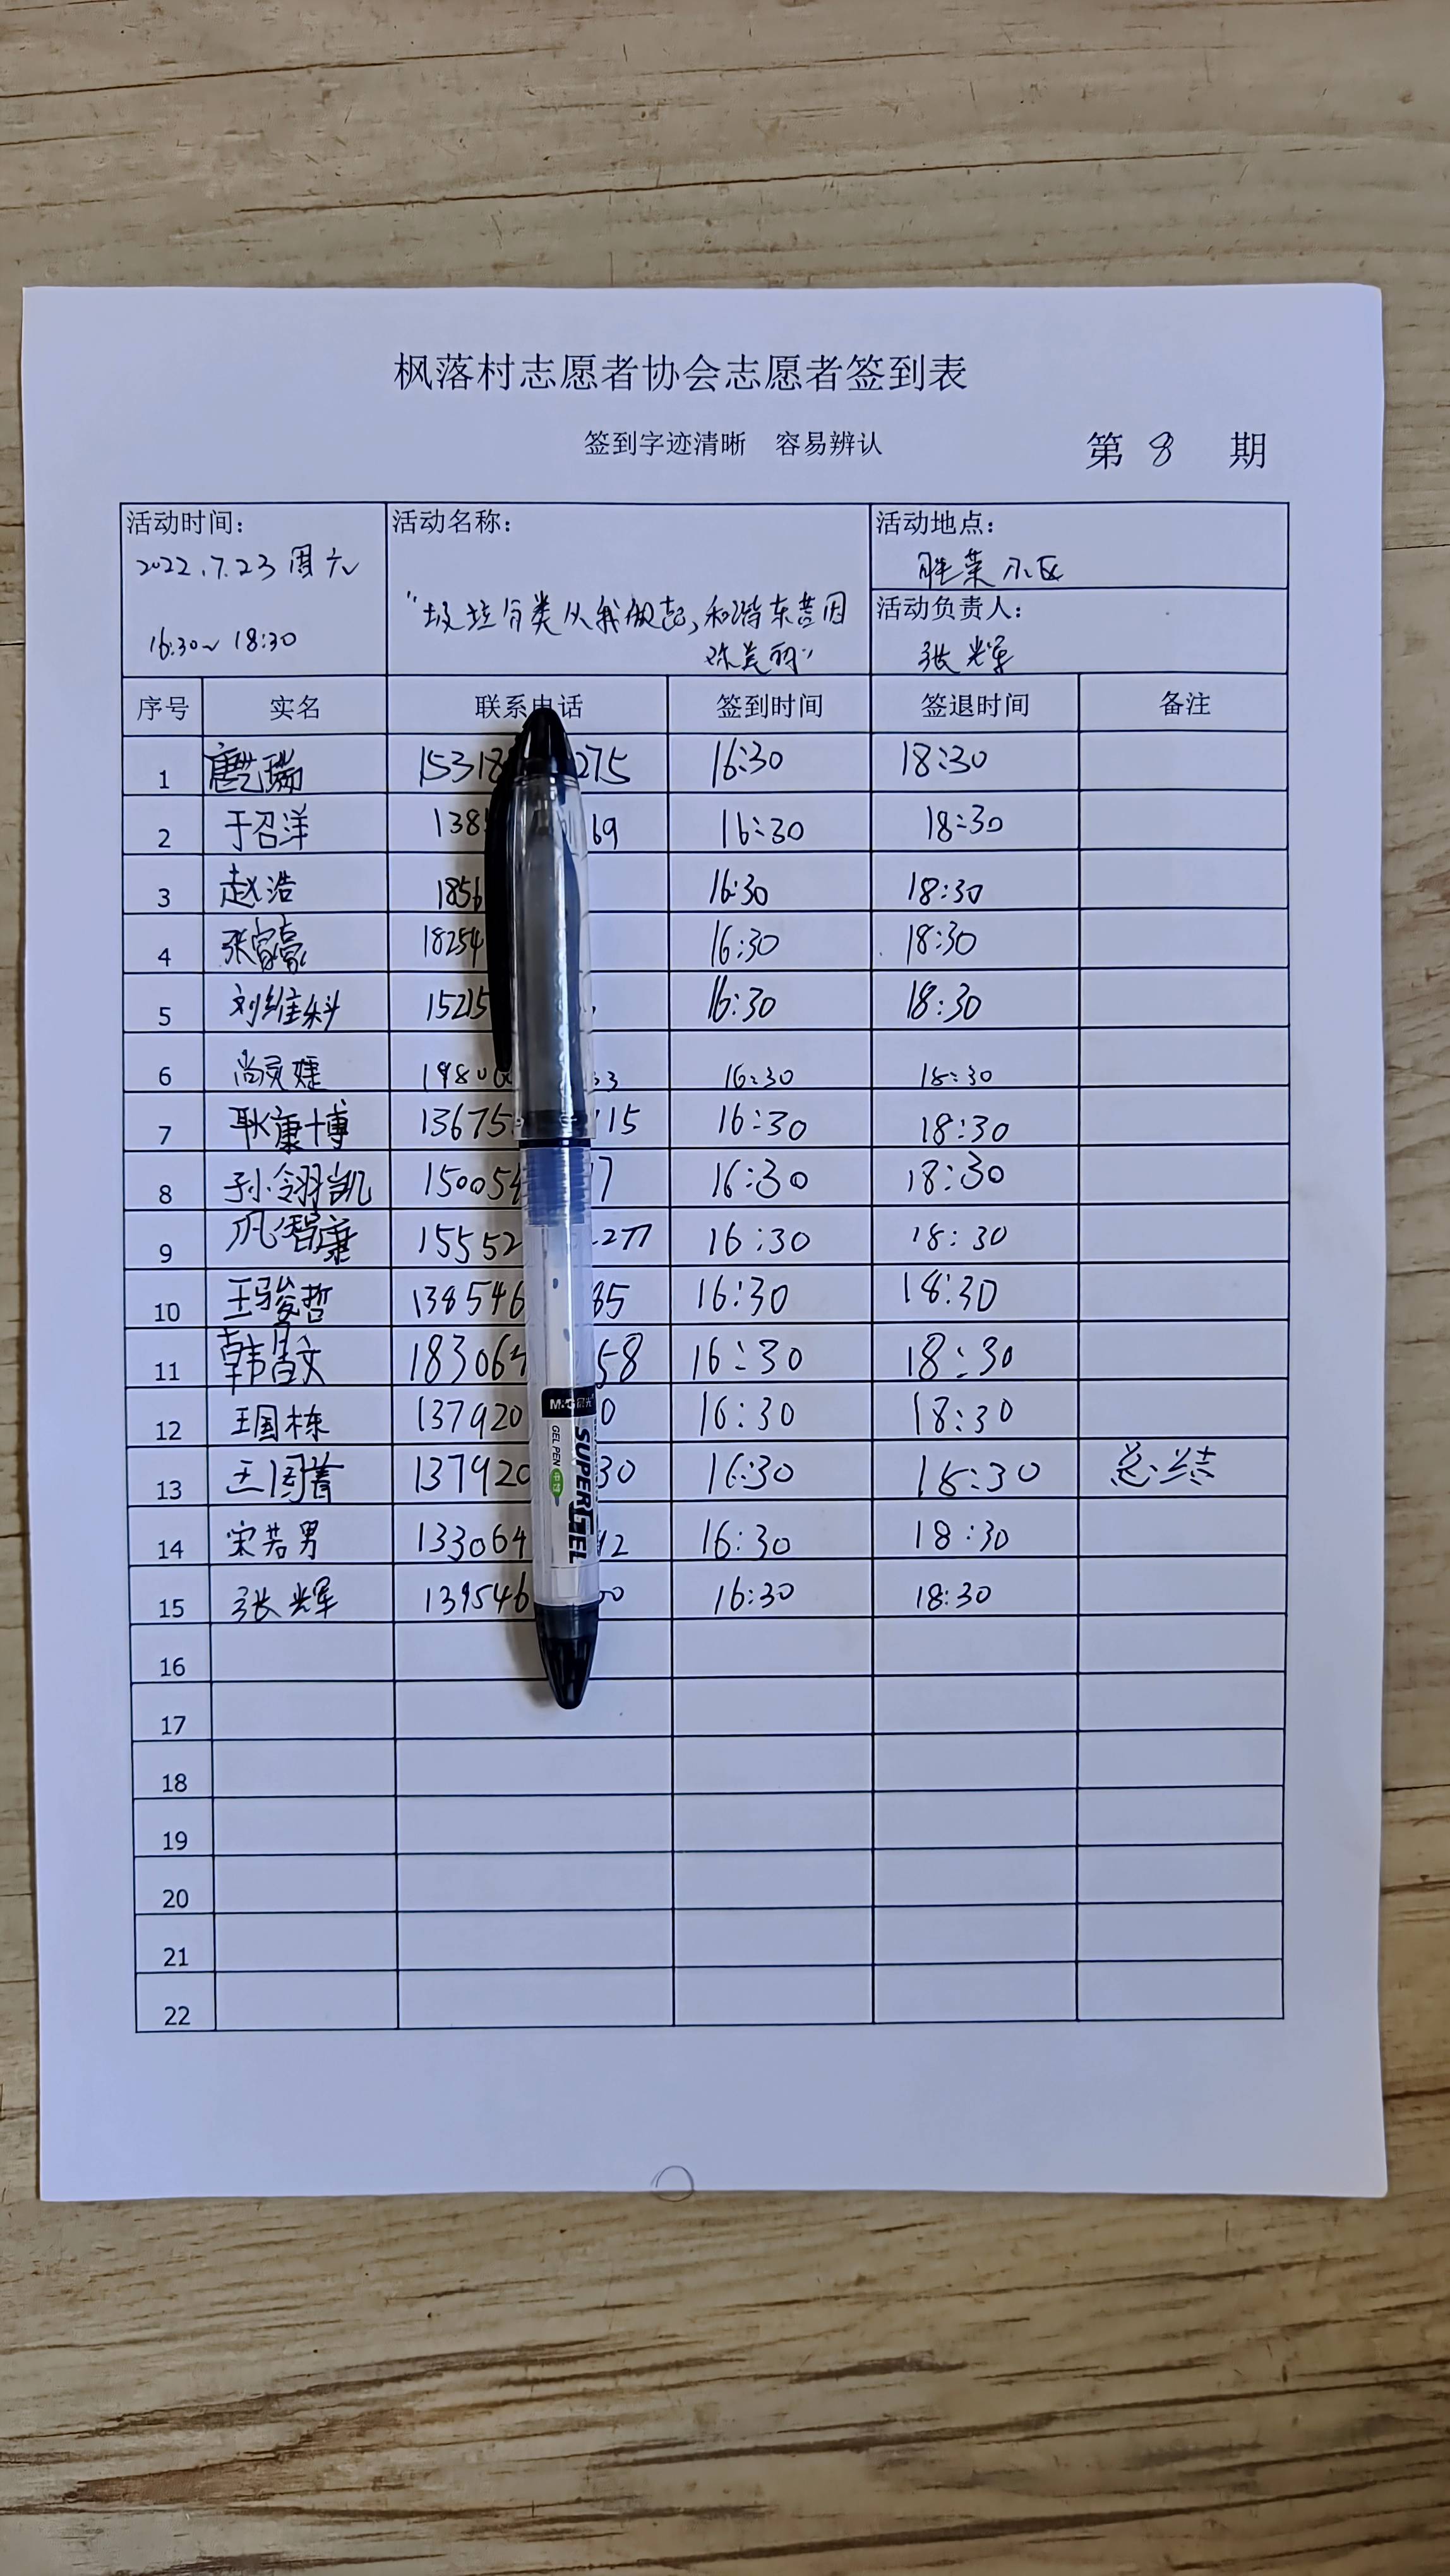 枫落村志愿者协会志愿者签到表
签到字迹清晰 容易辨认
第 8 期
活动时间:
2022.7.23 周六
16:30~18:30
活动名称:
"垃圾分类从我做起,和谐东营因
你美丽"
活动地点:
胜莱小区
活动负责人:
张辉
序号 实名 联系电话 签到时间 签退时间 备注
1 唐艺瑞 15318 275 16:30 18:30
2 于召洋 138 69 16:30 18:30
3 赵浩 1856 16:30 18:30
4 张家豪 18254 16:30 18:30
5 刘维科 15215 16:30 18:30
6 尚灵婕 1980 33 16:30 18:30
7 耿康博 13675 115 16:30 18:30
8 孙翎凯 15005 7 16:30 18:30
9 巩智康 15552 277 16:30 18:30
10 王骏哲 138546 85 16:30 18:30
11 韩昌文 18306 58 16:30 18:30
12 王国栋 137920 0 16:30 18:30
13 王国菁 137920 30 16:30 18:30 总结
14 宋若男 133064 92 16:30 18:30
15 张辉 139546 00 16:30 18:30
16
17
18
19
20
21
22
M&G 晨光
SUPER GEL
GEL PEN